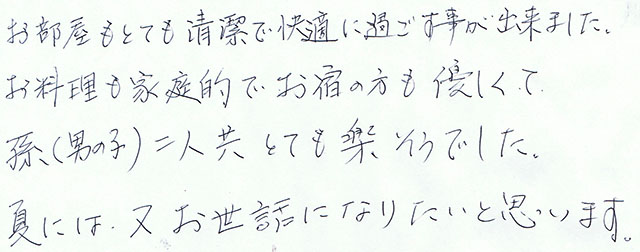 お部屋もとても清潔で快適に過ごす事が出来ました。
お料理も家庭的でお宿の方も優しくて
孫(男の子)二人共とても楽そうでした。
夏には、又お世話になりたいと思います。